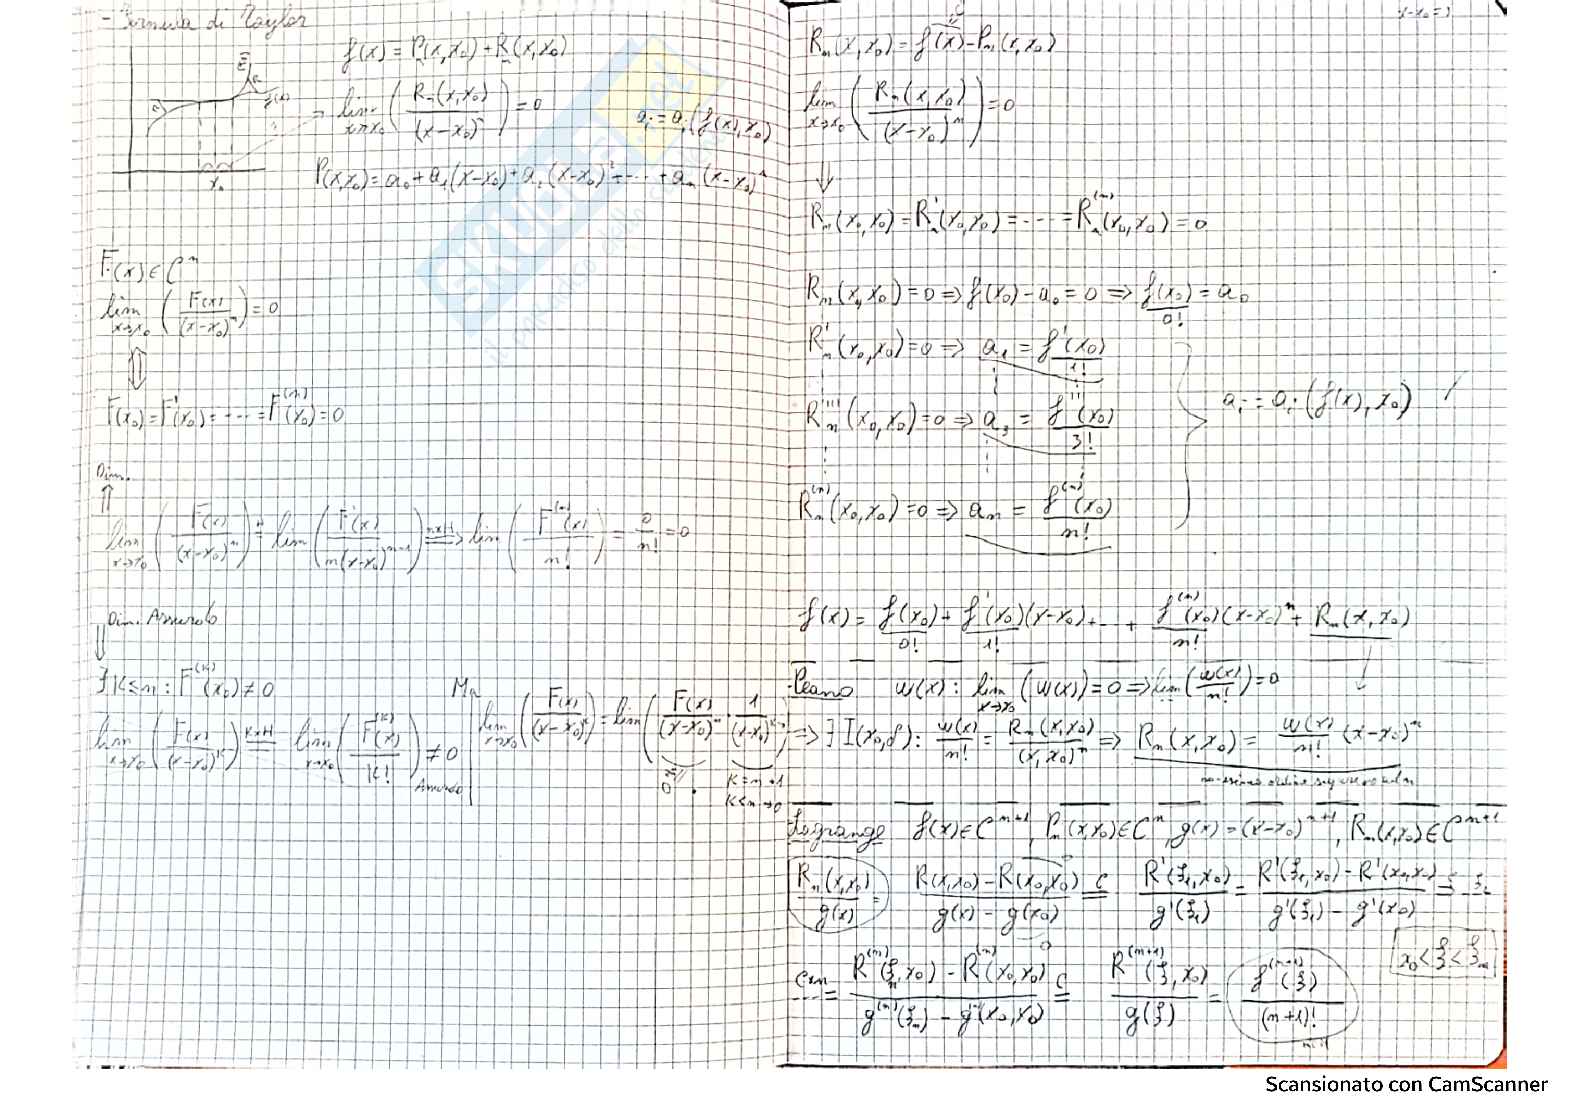 - Formula di Taylor
f(x) = P(x,x₀) + R(x,x₀)
lim x→x₀ (Rₙ(x,x₀)/(x-x₀)ⁿ) = 0
aᵢ = aᵢ(f(x),x₀)
x₀
P(x,x₀) = a₀ + a₁(x-x₀) + a₂(x-x₀)² + ---- + aₙ(x-x₀)ⁿ
F(x) ∈ Cⁿ
lim x→x₀ (F(x)/(x-x₀)ⁿ) = 0
⇕
F(x₀) = F'(x₀) = ---- = F⁽ⁿ⁾(x₀) = 0
Dim.
⇑
lim x→x₀ (F(x)/(x-x₀)ⁿ) =ᴴ lim (F'(x)/n(x-x₀)ⁿ⁻¹) =ⁿˣᴴ=> lim (F⁽ⁿ⁾(x)/n!) = 0/n! = 0
Dim. Assurdo
⇓
∃ K≤n : F⁽ᴷ⁾(x₀) ≠ 0
lim x→x₀ (F(x)/(x-x₀)ᴷ) =ᴷˣᴴ= lim x→x₀ (F⁽ᴷ⁾(x)/K!) ≠ 0
Assurdo
Ma
lim x→x₀ (F(x)/(x-x₀)ᴷ) = lim (F(x)/(x-x₀)ⁿ · 1/(x-x₀)ᴷ⁻ⁿ)
0
K=n →1
K<n →0
x-x₀=
Rₙ(x,x₀) = f(x) - Pₙ(x,x₀)
lim x→x₀ (Rₙ(x,x₀)/(x-x₀)ⁿ) = 0
⇓
Rₙ(x₀,x₀) = Rₙ'(x₀,x₀) = ---- = Rₙ⁽ⁿ⁾(x₀,x₀) = 0
Rₙ(x₀,x₀) = 0 => f(x₀) - a₀ = 0 => f(x₀)/0! = a₀
Rₙ'(x₀,x₀) = 0 => a₁ = f'(x₀)/1!
Rₙ'''(x₀,x₀) = 0 => a₃ = f'''(x₀)/3!
aᵢ = aᵢ(f(x),x₀)
Rₙ⁽ⁿ⁾(x₀,x₀) = 0 => aₙ = f⁽ⁿ⁾(x₀)/n!
f(x) = f(x₀)/0! + f'(x₀)/1! (x-x₀) + --- + f⁽ⁿ⁾(x₀)/n! (x-x₀)ⁿ + Rₙ(x,x₀)
Peano w(x) : lim x→x₀ (w(x)) = 0 => lim (w(x)/n!) = 0
=> ∃ I(x₀,δ) : w(x)/n! = Rₙ(x,x₀)/(x,x₀)ⁿ => Rₙ(x,x₀) = w(x)/n! (x-x₀)ⁿ
Lagrange f(x) ∈ Cⁿ⁺¹, Pₙ(x,x₀) ∈ Cⁿ, g(x) = (x-x₀)ⁿ⁺¹, Rₙ(x,x₀) ∈ Cⁿ⁺¹
Rₙ(x,x₀)/g(x) = R(x,x₀) - R(x₀,x₀)/g(x) - g(x₀) =ᶜ= R'(ξ₁,x₀)/g'(ξ₁) = R'(ξ₁,x₀) - R'(x₀,x₀)/g'(ξ₁) - g'(x₀)
cxn = R⁽ⁿ⁾(ξₙ,x₀) - R⁽ⁿ⁾(x₀,x₀)/g⁽ⁿ⁾(ξₙ) - g⁽ⁿ⁾(x₀,x₀) =ᶜ= R⁽ⁿ⁺¹⁾(ξ,x₀)/g(ξ) = f⁽ⁿ⁺¹⁾(ξ)/(n+1)!
x₀<ξ<ξₙ
SKUOLA.net
il paradiso dello studente
Scansionato con CamScanner